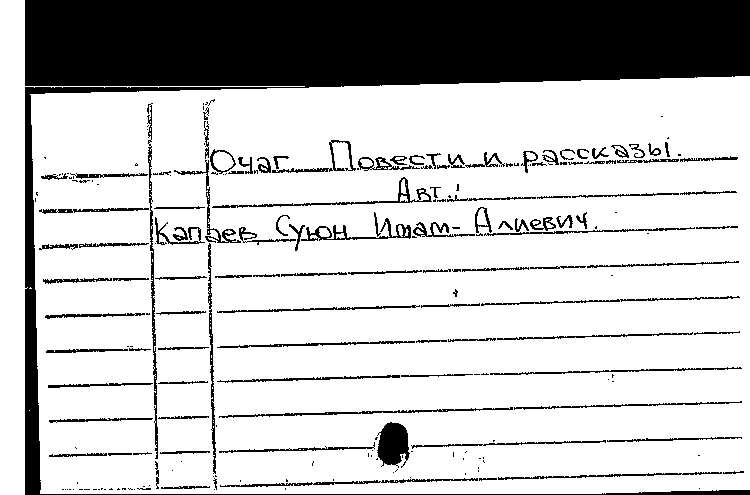 Очаг. Повести и рассказы.
Авт.:
Капаев Суюн Имам-Алиевич.